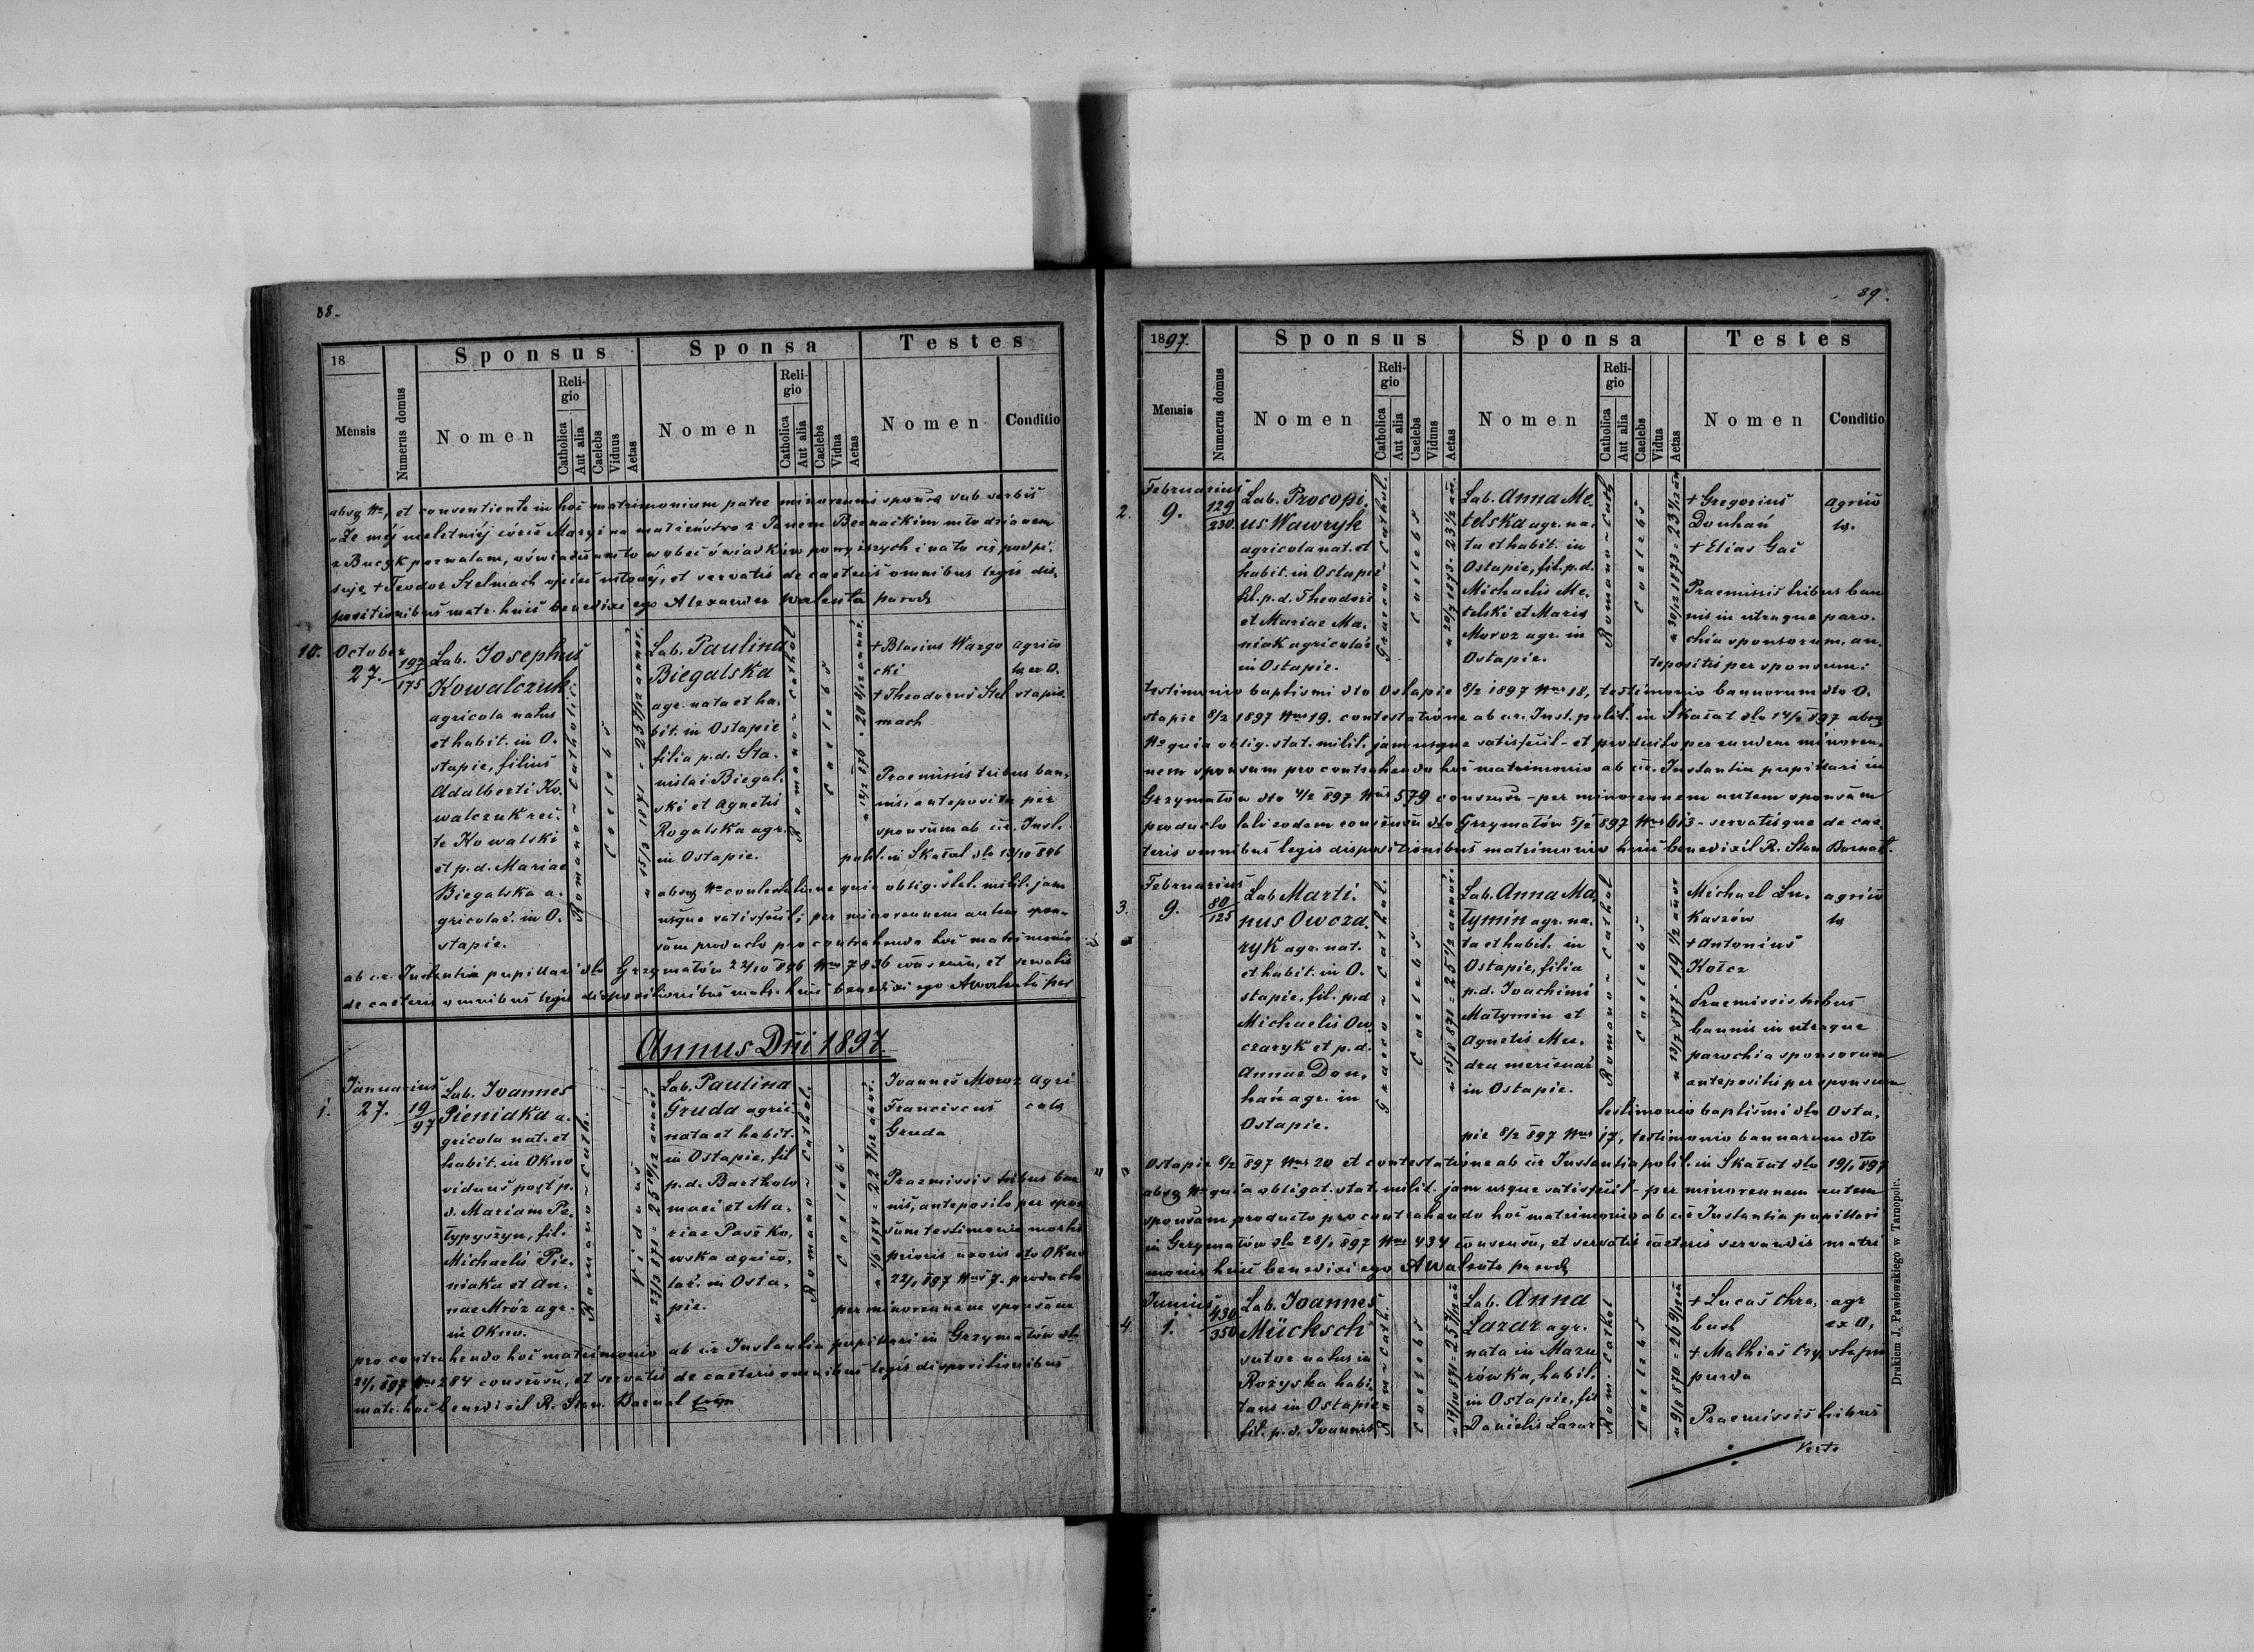 88.
18
Mensis
Numerus domus
Sponsus
Nomen
Religio
Catholica
Aut alia
Caelebs
Viduus
Aetas
Sponsa
Nomen
Religio
Catholica
Aut alia
Caelebs
Vidua
Aetas
Testes
Nomen
Conditio
absq Nro, et consentiente in hoc matrimonium patre minorennis sponsae sub verbis
"Że mej nieletniej córce Maryi na małżeństwo z Janem Bernackim młodzianem
z Bucyk pozwalam, oświadczam to wobec świadków
+ Teodor Stelmach ojciec młodej, et servatis de caeteris omnibus legis dis-
positionibus matr. huic benedixi ego Alexander Walenta paroch
10.
October
27.
197
175
Lab. Josephus
Kowalczuk
agricola natus
et habit. in O-
stapie, filius
Adalberti Ko-
walczuk rec-
te Kowalski
et p.d. Mariae
Biegalska a-
gricolar. in O-
stapie.
Romano-Catholic.
Coelebs
n 15/3 1871 = 25 7/12 annor.
Lab. Paulina
Biegalska
agr. nata et ha-
bit. in Ostapie
filia p.d. Sta-
nislai Biegal-
ski et Agnetis
Rogalska agr.
in Ostapie.
Romano-Cathol
Coelebs
+ Blasius Wargo
cki
+ Theodorus Stel
mach
agrico
lae ex O-
stapie
Praemissis tribus ban-
nis, anteposita per
sponsum ab c.r. Inst.
polit. in Skałat dto 13/10 896
absq Nro contestatione quia oblig. stat. milit. jam
usque satisfecit; per minorennem autem spon-
sam producto pro contrahendo hoc matrimonio
ab c.r. Instantia pupillari dto Grzymałów 22/10 896 Nrus 7836 consensu, et servatis
de caeteris omnibus legis dispositionibus matr. huic benedixi ego AWalenta par
Annus Dni 1897.
1.
Januarius
27.
19
97
Lab. Joannes
Pieniadka a-
gricola nat. et
habit. in Okno
viduus post p.
d. Mariam Pe-
łypyszyn, fil.
Michaelis Pie-
niaka et An-
nae Mróz agr.
in Okno.
Romano-Cath.
Viduus
Lab. Paulina
Gruda agric.
nata et habit.
in Ostapie, fil
p.d. Bartholo
maei et Ma-
riae Paszko-
wska agrico-
lar. in Osta-
pie.
Romano-Cathol.
Coelebs
Joannes Moroz
Franciscus
Gruda
agri
colae
Praemissis tribus ban
nis, anteposito per spon
sum testimonio mortis
prioris uxoris dto Okno
22/1 897 Nrus 7. producto
per minorennem sponsam
pro contrahendo hoc matrimonio ab c.r. Instantia pupillari in Grzymałów dto
21/1 897 Nrus 284 consensu, et servatis de caeteris omnibus legis dispositionibus
matr. hoc benedixit R. Stan. Barnat
89.
1897.
Mensis
Numerus domus
Sponsus
Nomen
Religio
Catholica
Aut alia
Caelebs
Viduus
Aetas
Sponsa
Nomen
Religio
Catholica
Aut alia
Caelebs
Vidua
Aetas
Testes
Nomen
Conditio
2.
Februarius
9.
129
230
Lab. Procopi-
us Wawryk
agricola nat. et
habit. in Ostapie
fil. p.d. Theodori
et Mariae Ma-
niok agricolar.
in Ostapie.
Graeco-Cathol.
Coelebs
n 20/7 1873 = 23 1/2 an.
Lab. Anna Me-
telska agr. na-
ta et habit. in
Ostapie, fil. p.d.
Michaelis Me-
telski et Mariae
Moroz agr. in
Ostapie.
Romano-Cath
Coelebs
+ Gregorius
Douhań
+ Elias Gač
agrico
lae.
Praemissis tribus ban
nis in utraque paro-
chia sponsorum, an-
tepositis per sponsum:
testimonio baptismi dto Ostapie 8/2 1897 Nrus 18, testimonio bannorum dto O-
stapie 8/2 1897 Nrus 19. contestatione ab c.r. Inst. polit. in Skałat dto 14/1 897 absq
Nro quia oblig. stat. milit. jam usque satisfecit - et producto per eundem minoren-
nem sponsum pro contrahendo hoc matrimonio ab c.r. Instantia pupillari in
Grzymałów dto 4/2 897 Nrus 579 consensu - per minorennem autem sponsam
producto tali eodem consensu dto Grzymałów 5/2 897 Nrus 613 - servatisque de cae-
teris omnibus legis dispositionibus matrimonio huic benedixit R. Stan Barnat.
3.
Februarius
9.
80
125
Lab Marti-
nus Owcza-
ryk agr. nat.
et habit. in O-
stapie, fil. p.d
Michaelis Ow-
czaryk et p.d.
Annae Don-
hań agr. in
Ostapie.
Graeco-Cathol.
Caelebs
n 15/8 871 = 25 1/2 annor.
Lab. Anna Ma-
tymin agr. na-
ta et habit. in
Ostapie, filia
p.d. Joachimi
Matymin et
Agnetis Mu-
dra
in Ostapie.
Romano-Cathol
Coelebs
n 13/7 877 = 19 1/2 annor
Michael Łu-
kaszów
+ Antonius
Kołcz
agrico
lae
Praemissis tribus
bannis in utraque
parochia sponsorum
antepositis per sponsum
testimonio baptismi dto Osta-
pie 8/2 897 Nrus 17, testimonio bannorum dto
Ostapie 8/2 897 Nrus 20 et contestatione ab c.r. Instantia polit. in Skałat dto 19/1 897
absq Nro quia obligat. stat. milit. jam usque satisfecit - per minorennem autem
sponsam producto pro contrahendo hoc matrimonio ab c.r. Instantia pupillari
in Grzymałów dto 28/1 897 Nrus 434 consensu, et servatis caeteris servandis matri
monio huic benedixi ego AWalenta paroch
4.
Junius
1.
430
350
Lab. Joannes
Mücksch
sutor natus in
Rożyska habi-
tans in Ostapie
fil. p.d. Joannis
Rom-Cath.
Coelebs
Lab. Anna
Lazar agr.
nata in Mazu
rówka, habit.
in Ostapie, fil
Danielis Lazar
Rom. Cathol
Coelebs
+ Lucas Chra-
bust
+ Mathias Czy-
purda
agr
ex O-
stapie
Praemissis tribus
Verte
Drukiem J. Pawłowskiego w Tarnopolu.